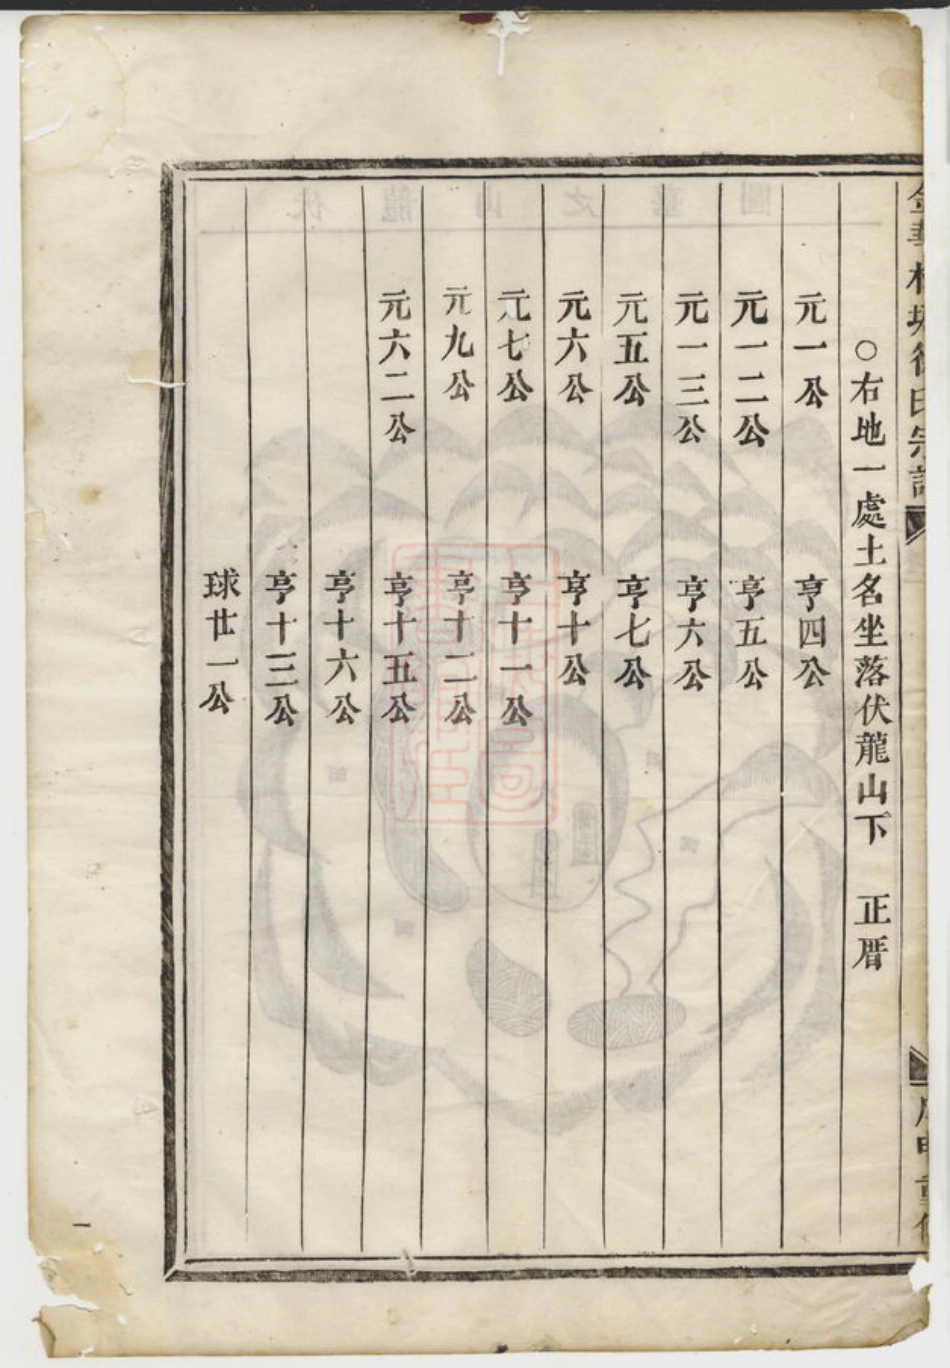 〇右地一處土名坐落伏龍山下　正厝
元一公　亨四公
元一二公　亨五公
元一三公　亨六公
元五公　亨七公
元六公　亨十公
元七公　亨十一公
元九公　亨十二公
元六二公　亨十五公
亨十六公
亨十三公
球廿一公